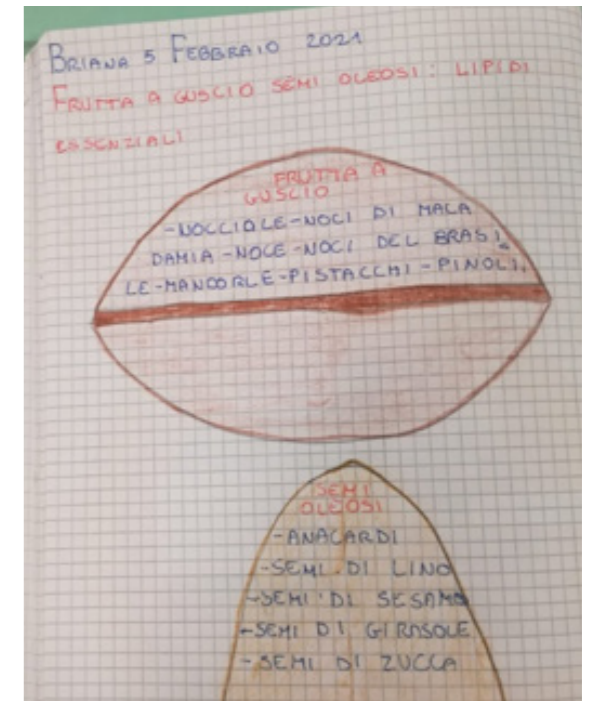 BRIANA 5 FEBBRAIO 2021
FRUTTA A GUSCIO SEMI OLEOSI: LIPIDI
ESSENZIALI
FRUTTA A
GUSCIO
-NOCCIOLE-NOCI DI MACA
DAMIA-NOCE-NOCI DEL BRASI
LE-MANDORLE-PISTACCHI-PINOLI.
SEMI
OLEOSI
-ANACARDI
-SEMI DI LINO
-SEMI DI SESAMO
-SEMI DI GIRASOLE
-SEMI DI ZUCCA